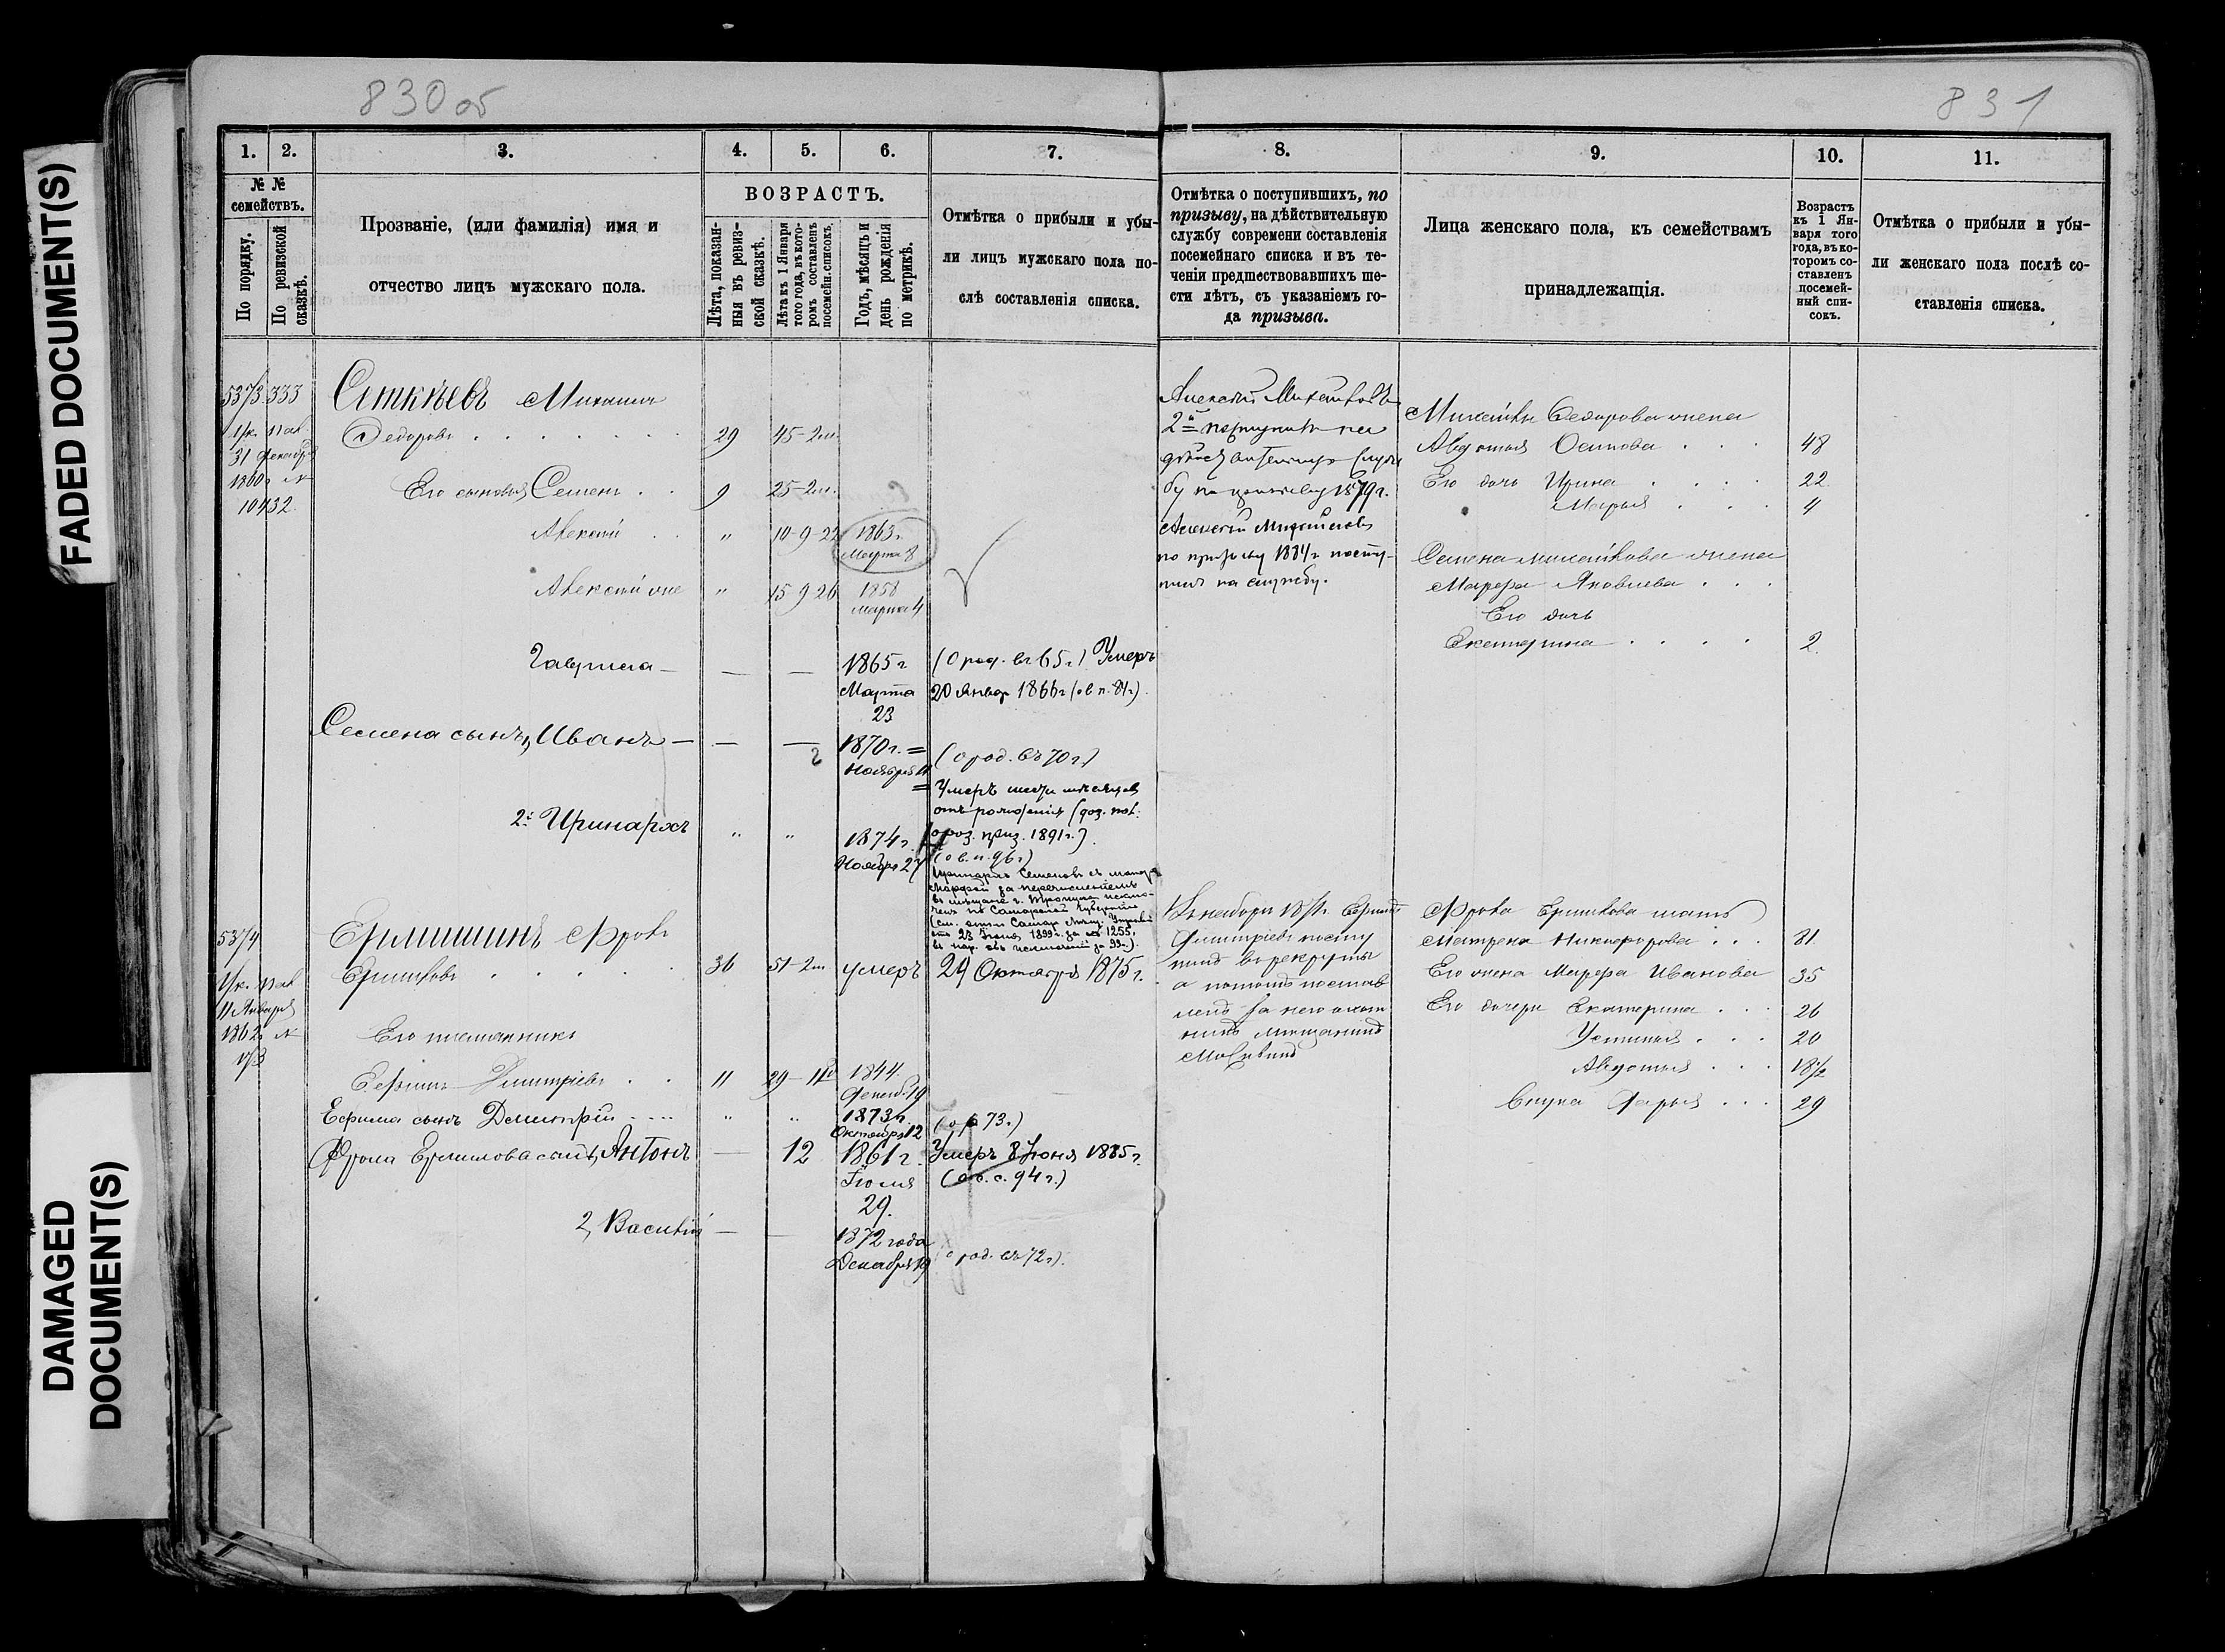 830 об
831
FADED DOCUMENT(S)
DAMAGED
DOCUMENT(S)
1.
2.
3.
4.
5.
6.
7.
8.
9.
10.
11.
№ №
семействъ.
По порядку.
По ревизской
сказкѣ.
Прозваніе, (или фамилія) имя и
отчество лицъ мужскаго пола.
ВОЗРАСТЪ.
Лѣта, показан-
ныя въ ревиз-
ской сказкѣ.
Лѣта къ 1 Января
того года, въ кото-
ромъ составленъ
посемейн. списокъ.
Годъ, мѣсяцъ и
день рожденія
по метрикѣ.
Отмѣтка о прибыли и убы-
ли лицъ мужскаго пола по-
слѣ составленія списка.
Отмѣтка о поступившихъ, по
призыву, на дѣйствительную
службу современи составленія
посемейнаго списка и въ те-
ченіи предшествовавшихъ ше-
сти лѣтъ, съ указаніемъ го-
да призыва.
Лица женскаго пола, къ семействамъ
принадлежащія.
Возрастъ
къ 1 Ян-
варя того
года, въ ко-
торомъ со-
ставленъ
посемей-
ный спи-
сокъ.
Отмѣтка о прибыли и убы-
ли женскаго пола послѣ со-
ставленія списка.
5373 333
31 Декабр
1860 г №
10432.
Михаилъ
Федоровъ 29 45-2 м.
Его сыновья Семенъ 9 25-2 м.
Алексѣй " 10-9-22 1863 г.
Марта 8
Алексѣй же " 15-9-26 1858
Марта 4
Гаврила — — — 1865 г (О род. въ 65 г.) Умеръ
Марта 20 Январ 1866 г (о в п. 84 г.).
23
Семена сынъ 1, Иванъ — — — 1870 г. = (о род. въ 70 г.)
Ноября 11
Умеръ шести мѣсяцевъ
отъ рожденія
приз. 1891 г.)
2й Иринархъ " " 1874 г.
Ноября 27 (о в. п. 96 г)
Иринархъ Семеновъ съ матер
Марфой за перечисленіемъ
въ мѣщане г.
по Самарской Губерніи
23 Іюня 1899 г. за № 1255,
за 99 г.).
Алексѣй Михайловъ
2й поступилъ на
дѣйствительную служ
бу по призыву 1879 г.
Алексѣй Михайловъ
по призыву 1884 г. посту-
пилъ на службу.
Михайлы Федорова жена
Авдотья Осипова 48
Его дочь Ирина 22
Марья 4
Семена Михайлова жена
Марфа Яковлева
Его дочь
Екатерина 2
5374
11 Января
1862 г №
173
Ермишинъ Фролъ
Ермиловъ 36 51-2 м умеръ 29 Октября 1875 г.
Его племянникъ
Ефимъ Дмитріевъ 11 29-11 1844
Декаб. 19
Ефима сынъ Дмитрій " " 1873 г. (о р 73.)
Октября 12
Фрола Ермилова сынъ 1, Антонъ — 12 1861 г. Умеръ 8 Іюня 1885 г.
Іюля (о в. с. 94 г.)
29.
2, Василій — — 1872 года
Декабря 19 о род. въ 72 г.).
Ефимъ
Дмитріевъ посту
пилъ въ рекруты
а потомъ постав
ленъ за него охот
никъ мѣщанинъ
Фрола Ермилова мать
Матрена Никифорова 81
Его жена Марфа Иванова 35
Его дочери Екатерина 26
Устинья 20
Авдотья 18½
Внука Дарья 29